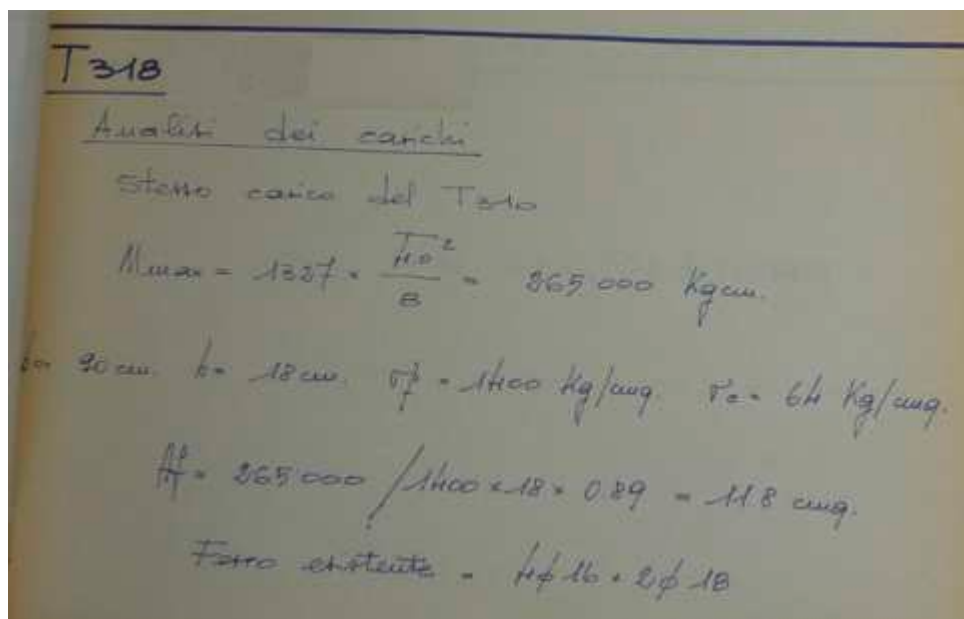 T318
Analisi dei carichi
Stesso carico del T310
Mmax = 1327 × 4.0² / 8 = 265 000 Kgcm.
90 cm. h= 18 cm. σf = 1400 Kg/cmq. σc = 64 Kg/cmq.
Af = 265 000 / 1400 × 18 × 0.89 = 11.8 cmq.
Ferro esistente = 4ϕ16 + 2ϕ18